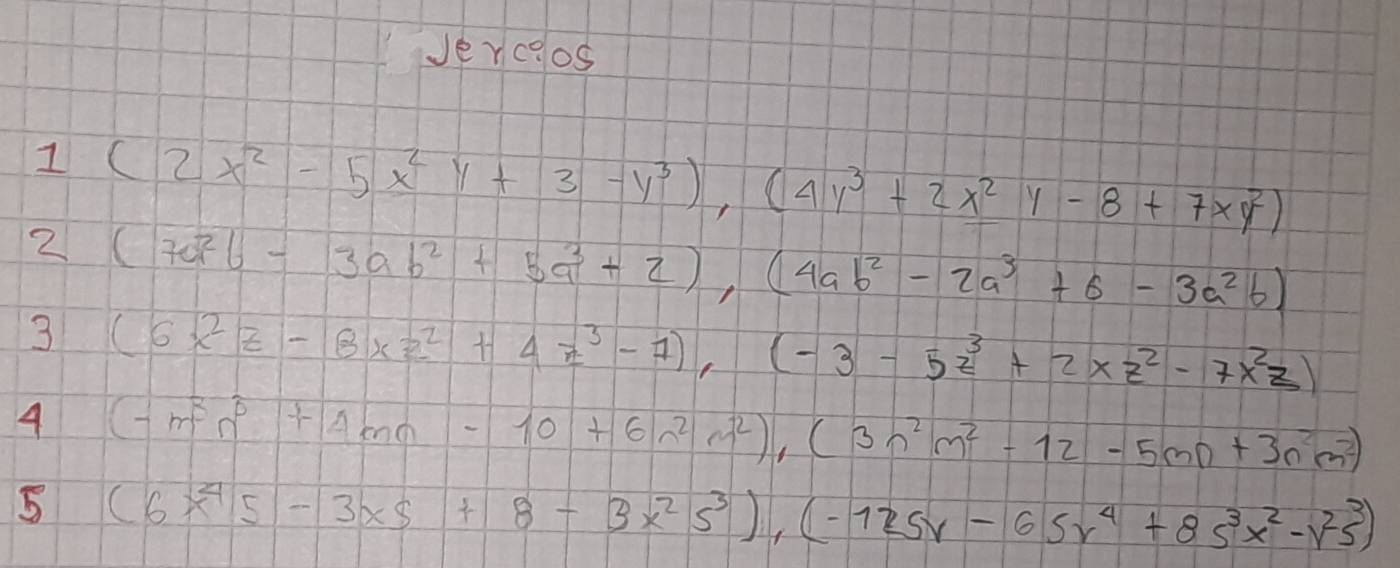 Jercios
1 (2x² - 5x²y + 3 - y³), (4y³ + 2x²y - 8 + 7xy²)
2 (7a²b - 3ab² + 5a³ + 2), (4ab² - 2a³ + 6 - 3a²b)
3 (6x²z - 8xz² + 4z³ - 7), (-3 - 5z³ + 2xz² - 7x²z)
4 (-m³n³ + 4mn - 10 + 6n²m²), (3n²m² - 12 - 5mn + 3n²m²)
5 (6x⁴s - 3xs + 8 - 3x²s³), (-12sr - 6sr⁴ + 8s³x² - r²s³)